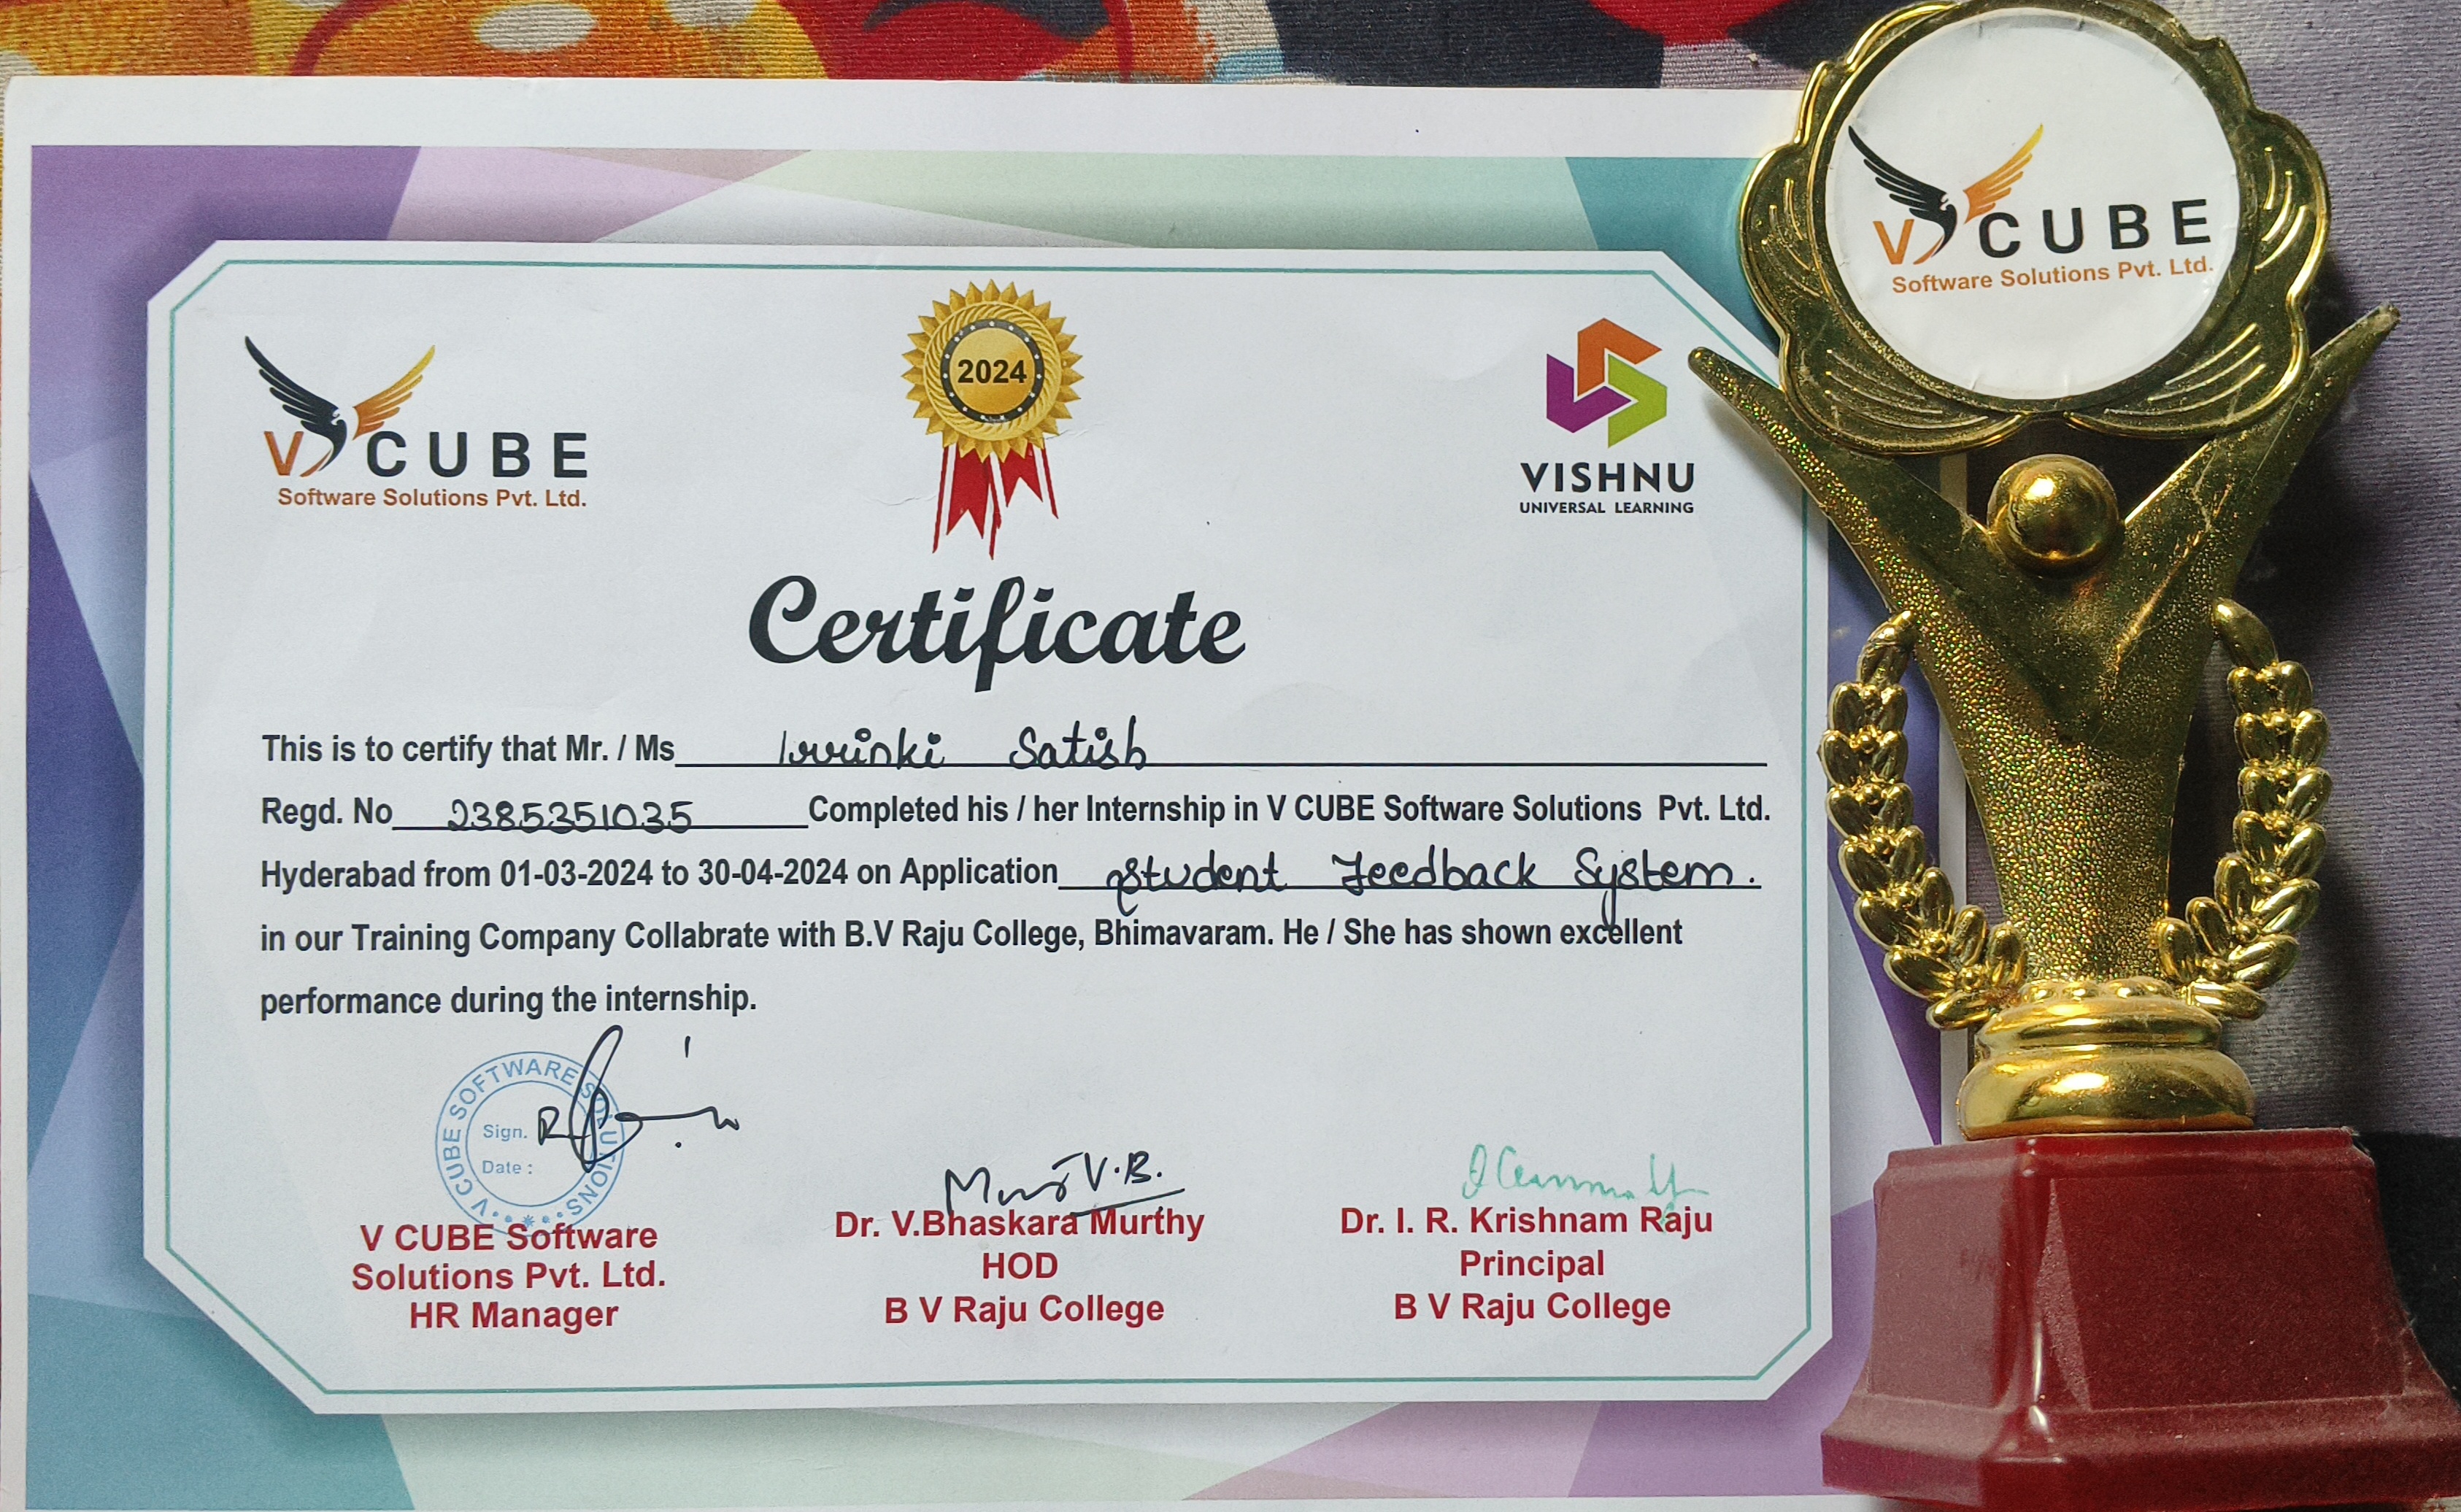 V CUBE
Software Solutions Pvt. Ltd.
2024
VISHNU
UNIVERSAL LEARNING
V CUBE
Software Solutions Pvt. Ltd.
Certificate
This is to certify that Mr. / Ms Satish
Regd. No 2385351035 Completed his / her Internship in V CUBE Software Solutions Pvt. Ltd.
Hyderabad from 01-03-2024 to 30-04-2024 on Application Student Feedback System.
in our Training Company Collabrate with B.V Raju College, Bhimavaram. He / She has shown excellent
performance during the internship.
V CUBE SOFTWARE SOLUTIONS
Sign.
Date :
V CUBE Software
Solutions Pvt. Ltd.
HR Manager
Dr. V.Bhaskara Murthy
HOD
B V Raju College
Dr. I. R. Krishnam Raju
Principal
B V Raju College